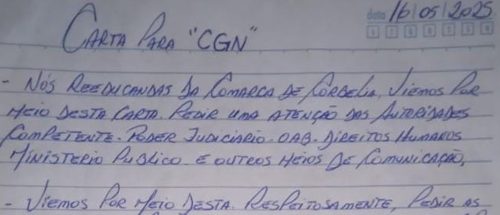 data 16/05/2025
CARTA PARA "CGN"
- NÓS REEDUCANDAS DA COMARCA DE CORBELIA, VIEMOS POR
MEIO DESTA CARTA. PEDIR UMA ATENÇÃO DAS AUTORIDADES
COMPETENTE. PODER JUDICIARIO. OAB. DIREITOS HUMANOS
MINISTERIO PUBLICO E OUTROS MEIOS DE COMUNICAÇÃO,
- VIEMOS POR MEIO DESTA. RESPEITOSAMENTE, PEDIR AS